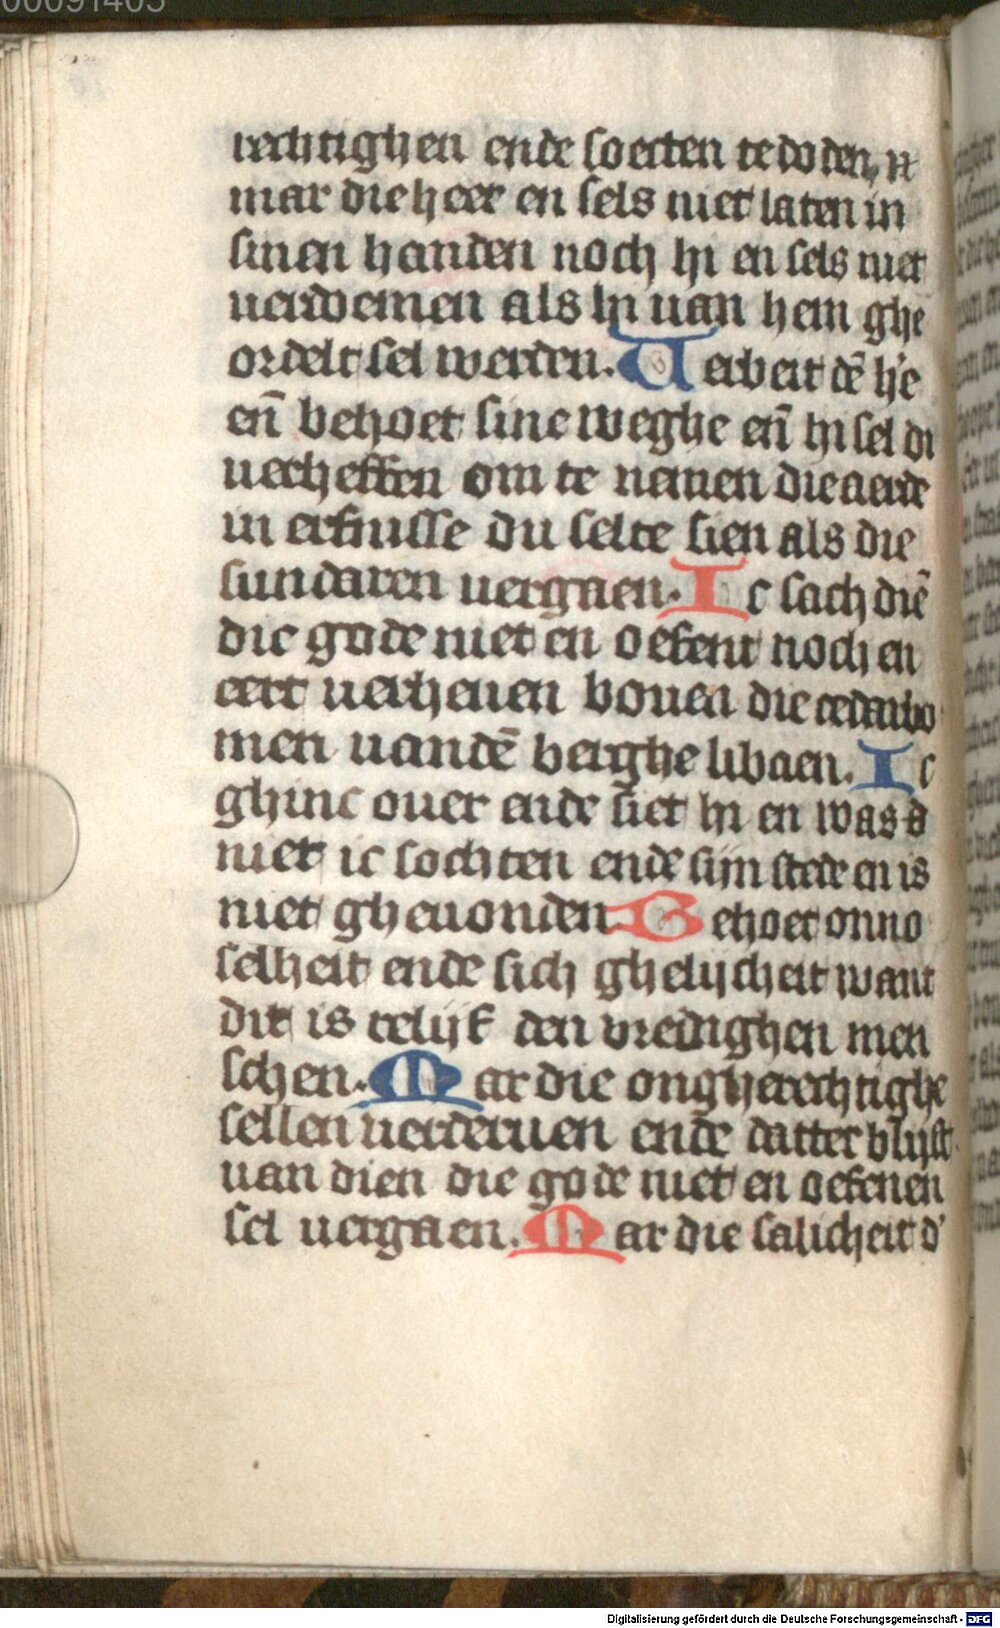 00091405
rechtighen ende soecten te doden n
mar die heer en sels niet laten in
sinen handen noch hi en sels niet
uerdoemen als hi uan hem ghe
ordelt sel werden. Verbeit dē h'e
eñ behoet sine weghe eñ hi sel di
uerheffen om te nemen die aerde
in erfnisse du selte sien als die
sundaren uergaen. Ic sach diē
die gode niet en oefent noch en
eert uerheuen bouen die cederbo
men uandē berghe libaen. Ic
ghinc ouer ende siet hi en was d
niet ic sochten ende sijn stede en is
niet gheuonden. Behoet onno
selheit ende sich ghelijcheit want
dit is relijk den vredighen men
schen. Mar die ongherechtighe
sellen uerderuen ende datter blijft
uan dien die gode niet en oefenen
sel uergaen. Mar die salicheit d'
Digitalisierung gefördert durch die Deutsche Forschungsgemeinschaft - DFG